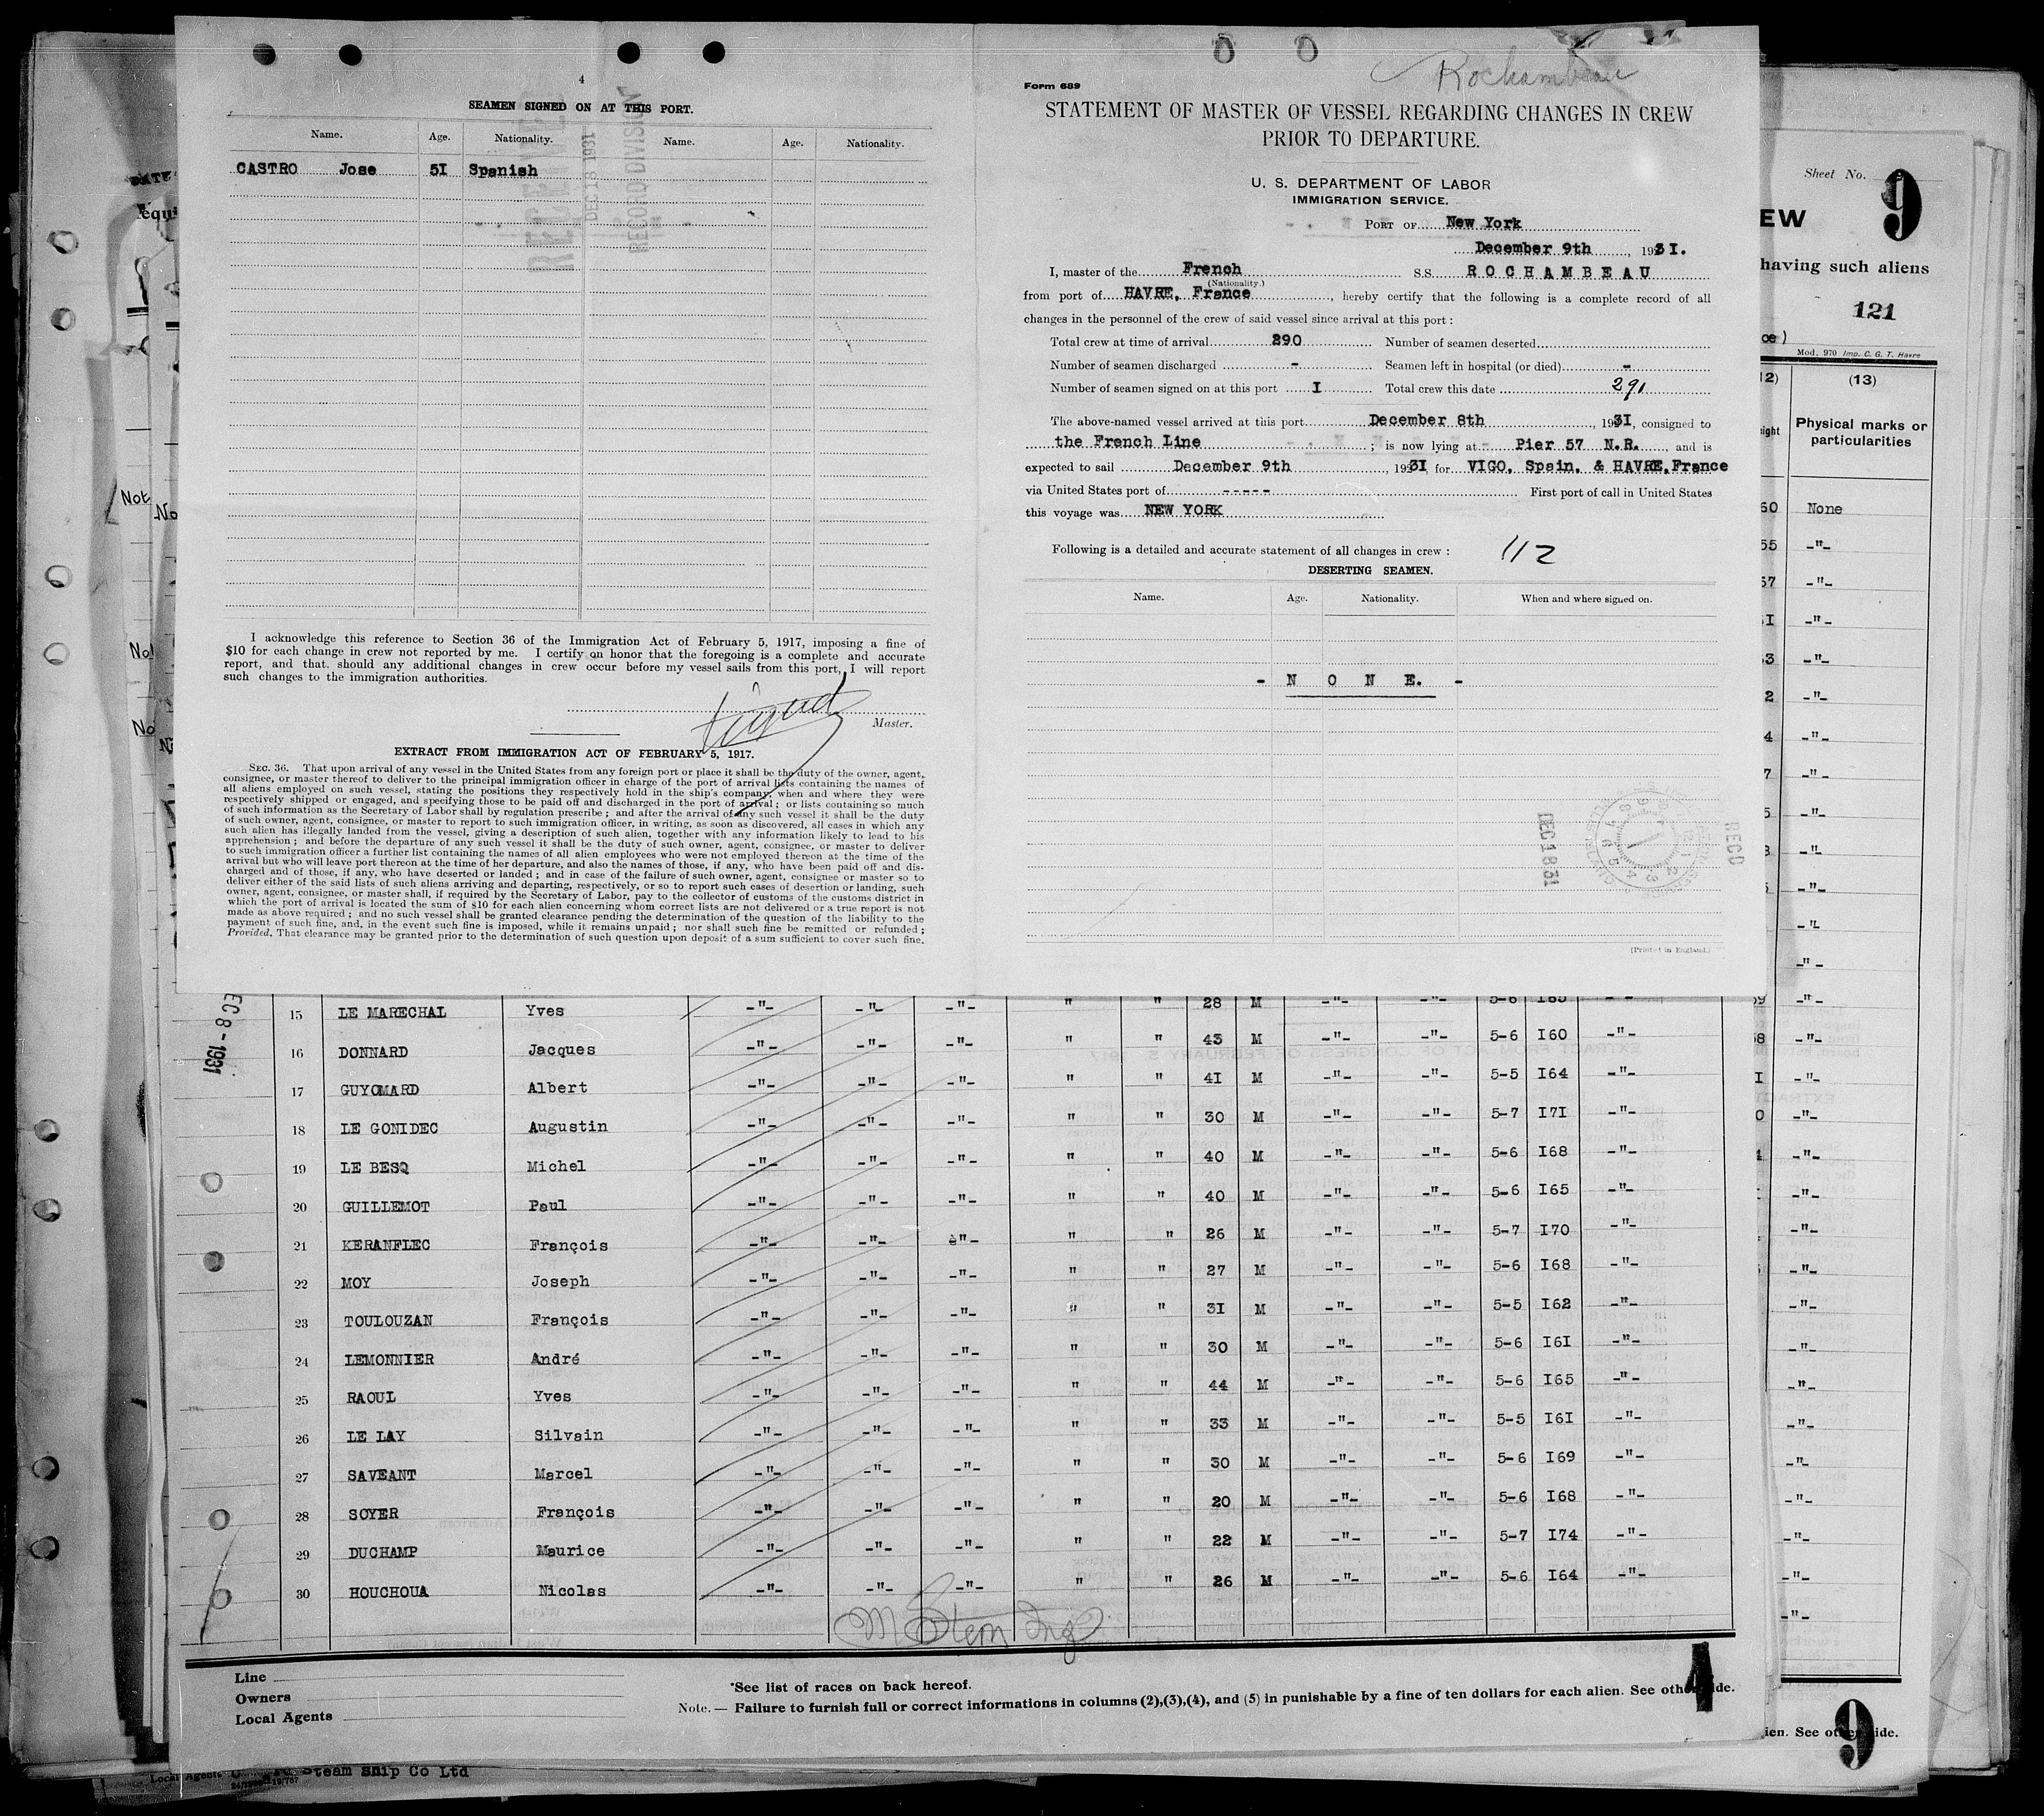 4
SEAMEN SIGNED ON AT THIS PORT.
Name. Age. Nationality. Name. Age. Nationality.
CASTRO Jose 5I Spanish
RECEIVED
DEC 18 1931
RECORD DIVISION
I acknowledge this reference to Section 36 of the Immigration Act of February 5, 1917, imposing a fine of
$10 for each change in crew not reported by me. I certify on honor that the foregoing is a complete and accurate
report, and that. should any additional changes in crew occur before my vessel sails from this port, I will report
such changes to the immigration authorities.
Master.
EXTRACT FROM IMMIGRATION ACT OF FEBRUARY 5, 1917.
SEC. 36. That upon arrival of any vessel in the United States from any foreign port or place it shall be the duty of the owner, agent,
consignee, or master thereof to deliver to the principal immigration officer in charge of the port of arrival lists containing the names of
all aliens employed on such vessel, stating the positions they respectively hold in the ship's company, when and where they were
respectively shipped or engaged, and specifying those to be paid off and discharged in the port of arrival; or lists containing so much
of such information as the Secretary of Labor shall by regulation prescribe; and after the arrival of any such vessel it shall be the duty
of such owner, agent, consignee, or master to report to such immigration officer, in writing, as soon as discovered, all cases in which any
such alien has illegally landed from the vessel, giving a description of such alien, together with any information likely to lead to his
apprehension; and before the departure of any such vessel it shall be the duty of such owner, agent, consignee, or master to deliver
to such immigration officer a further list containing the names of all alien employees who were not employed thereon at the time of the
arrival but who will leave port thereon at the time of her departure, and also the names of those, if any, who have been paid off and dis-
charged and of those, if any, who have deserted or landed; and in case of the failure of such owner, agent, consignee or master so to
deliver either of the said lists of such aliens arriving and departing, respectively, or so to report such cases of desertion or landing, such
owner, agent, consignee, or master shall, if required by the Secretary of Labor, pay to the collector of customs of the customs district in
which the port of arrival is located the sum of $10 for each alien concerning whom correct lists are not delivered or a true report is not
made as above required; and no such vessel shall be granted clearance pending the determination of the question of the liability to the
payment of such fine, and, in the event such fine is imposed, while it remains unpaid; nor shall such fine be remitted or refunded;
Provided, That clearance may be granted prior to the determination of such question upon deposit of a sum sufficient to cover such fine.
Rochambeau
Form 689
STATEMENT OF MASTER OF VESSEL REGARDING CHANGES IN CREW
PRIOR TO DEPARTURE.
U. S. DEPARTMENT OF LABOR
IMMIGRATION SERVICE.
PORT OF New York
December 9th, 1931.
I, master of the French S.S. ROCHAMBEAU
(Nationality.)
from port of HAVRE, France, hereby certify that the following is a complete record of all
changes in the personnel of the crew of said vessel since arrival at this port:
Total crew at time of arrival 290 Number of seamen deserted
Number of seamen discharged - Seamen left in hospital (or died) -
Number of seamen signed on at this port I Total crew this date 291
The above-named vessel arrived at this port December 8th, 193I, consigned to
the French Line; is now lying at Pier 57 N.R., and is
expected to sail December 9th, 193I for VIGO, Spain, & HAVRE, France
via United States port of ----- First port of call in United States
this voyage was NEW YORK
Following is a detailed and accurate statement of all changes in crew: 112
DESERTING SEAMEN.
Name. Age. Nationality. When and where signed on.
- N O N E. -
DEC 18 31
RECD
(Printed in England.)
Sheet No. 9
EW
having such aliens
121
ce)
Mod. 970 Imp. C. G. T. Havre
12) (13)
ight Physical marks or
particularities
60 None
55 -"-
57 -"-
I -"-
3 -"-
2 -"-
4 -"-
7 -"-
5 -"-
-"-
-"-
-"-
-"-
DEC 8 - 1931
15 LE MARECHAL Yves -"- -"- -"- " " 28 M -"- -"- 5-6 I65 -"-
16 DONNARD Jacques -"- -"- -"- " " 43 M -"- -"- 5-6 I60 -"-
17 GUYOMARD Albert -"- -"- -"- " " 4I M -"- -"- 5-5 I64 -"-
18 LE GONIDEC Augustin -"- -"- -"- " " 30 M -"- -"- 5-7 I7I -"-
19 LE BESQ Michel -"- -"- -"- " " 40 M -"- -"- 5-6 I68 -"-
20 GUILLEMOT Paul -"- -"- -"- " " 40 M -"- -"- 5-6 I65 -"-
21 KERANFLEC François -"- -"- è"- " " 26 M -"- -"- 5-7 I70 -"-
22 MOY Joseph -"- -"- -"- " " 27 M -"- -"- 5-6 I68 -"-
23 TOULOUZAN François -"- -"- -"- " " 3I M -"- -"- 5-5 I62 -"-
24 LEMONNIER André -"- -"- -"- " " 30 M -"- -"- 5-6 I6I -"-
25 RAOUL Yves -"- -"- -"- " " 44 M -"- -"- 5-6 I65 -"-
26 LE LAY Silvain -"- -"- -"- " " 33 M -"- -"- 5-5 I6I -"-
27 SAVEANT Marcel -"- -"- -"- " " 30 M -"- -"- 5-6 I69 -"-
28 SOYER François -"- -"- -"- " " 20 M -"- -"- 5-6 I68 -"-
29 DUCHAMP Maurice -"- -"- -"- " " 22 M -"- -"- 5-7 I74 -"-
30 HOUCHOUA Nicolas -"- -"- -"- " " 26 M -"- -"- 5-6 I64 -"-
Line
Owners
Local Agents
*See list of races on back hereof.
Note. — Failure to furnish full or correct informations in columns (2),(3),(4), and (5) in punishable by a fine of ten dollars for each alien. See other side.
4
ien. See other side.
9
Local Agents Steam Ship Co Ltd